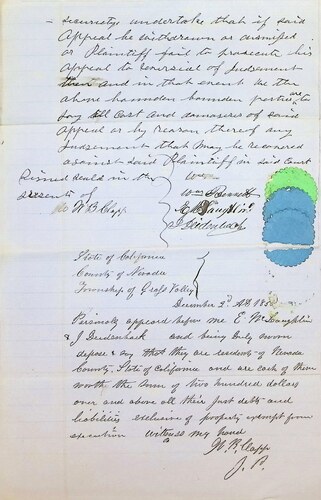 – securitys undertake that if said
Appeal be withdrawn or dismissed
or Plaintiff fail to prosecute his
appeal to reversal of Judgement
then and in that event we the
above bounden parties are to
pay all Cost and damages of said
appeal or by reason thereof any
Judgement that may be recovered
against said Plaintiff in said Court
Signed seald in the
presents of
W B Clapp
Wm Bennett
E McLaughlin
J Seidenbach
State of California
County of Nevada
Township of Grass Valley
December 2d A.D. 185
Personly appeard before me E McLaughlin
& J Seidenback and being duly sworn
depose & say that they are residents of Nevada
County, State of California and are each of them
worth the sum of two hundred dollars
over and above all their just debts and
liabilities exclusive of property exempt from
execution witness my hand
W. B. Clapp
J. P.